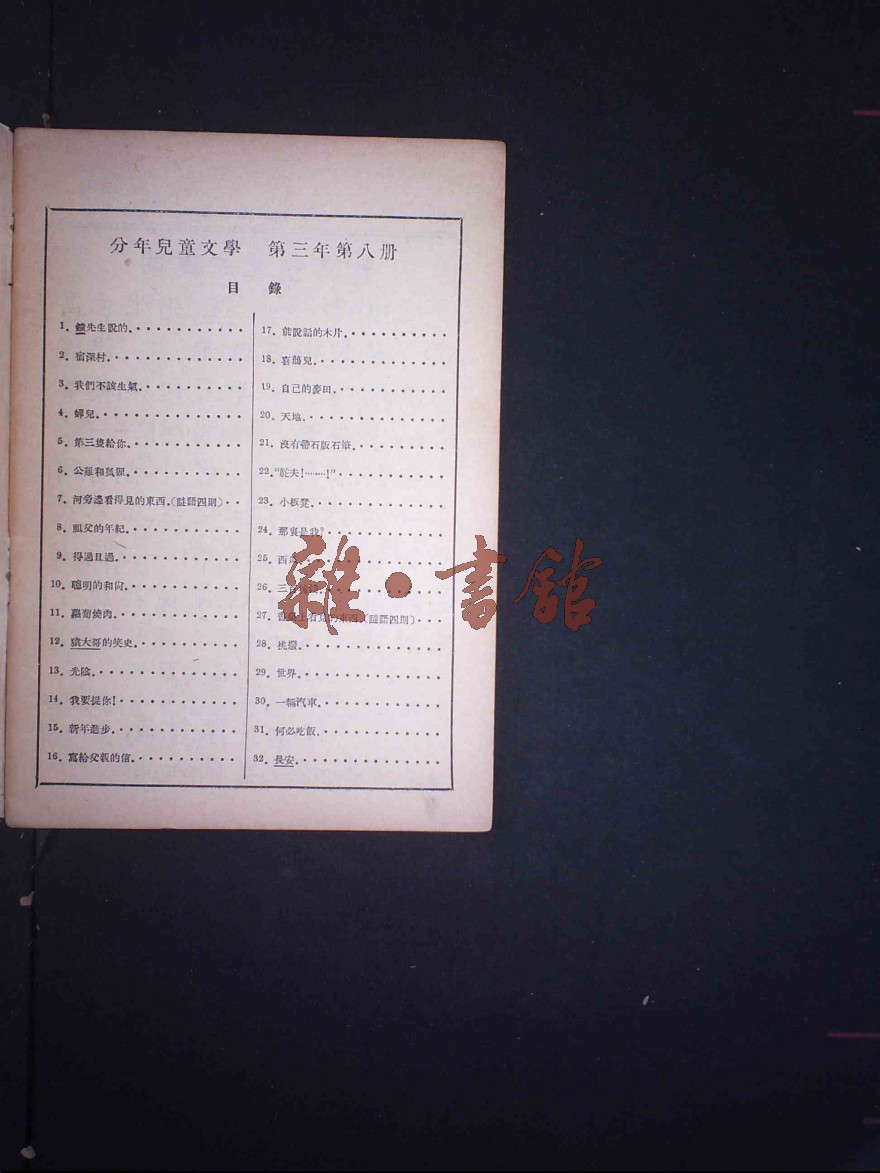 分年兒童文學　第三年第八册
目　錄
1. 鐘先生說的. · · · · · · · · · · ·
2. 宿深村. · · · · · · · · · · · · ·
3. 我們不該生氣. · · · · · · · · · ·
4. 蟬兒. · · · · · · · · · · · · · ·
5. 第三隻給你. · · · · · · · · · · ·
6. 公雞和狐狸. · · · · · · · · · · ·
7. 河旁邊看得見的東西.(謎語四則) · ·
8. 祖父的年紀. · · · · · · · · · · ·
9. 得過且過. · · · · · · · · · · · ·
10. 聰明的和尙. · · · · · · · · · · ·
11. 蘿蔔燒肉. · · · · · · · · · · · ·
12. 猿大哥的笑史. · · · · · · · · · ·
13. 光陰. · · · · · · · · · · · · · ·
14. 我要捉你! · · · · · · · · · · · ·
15. 新年進步. · · · · · · · · · · · ·
16. 寫給父親的信. · · · · · · · · · ·
17. 能說話的木片. · · · · · · · · · ·
18. 喜鵲兒. · · · · · · · · · · · · ·
19. 自己的麥田. · · · · · · · · · · ·
20. 天地. · · · · · · · · · · · · · ·
21. 沒有帶石版石筆. · · · · · · · · ·
22. 夫!········!" · · · · · · · · · · ·
23. 小板凳. · · · · · · · · · · · · ·
24. 那裏是我? · · · · · · · · · · · ·
25. 西
26. 三
27. 看見的東西.(謎語四則) · · ·
28. 挑撥. · · · · · · · · · · · · · ·
29. 世界. · · · · · · · · · · · · · ·
30. 一輛汽車. · · · · · · · · · · · ·
31. 何必吃飯. · · · · · · · · · · · ·
32. 長安. · · · · · · · · · · · · · ·
雜·書館